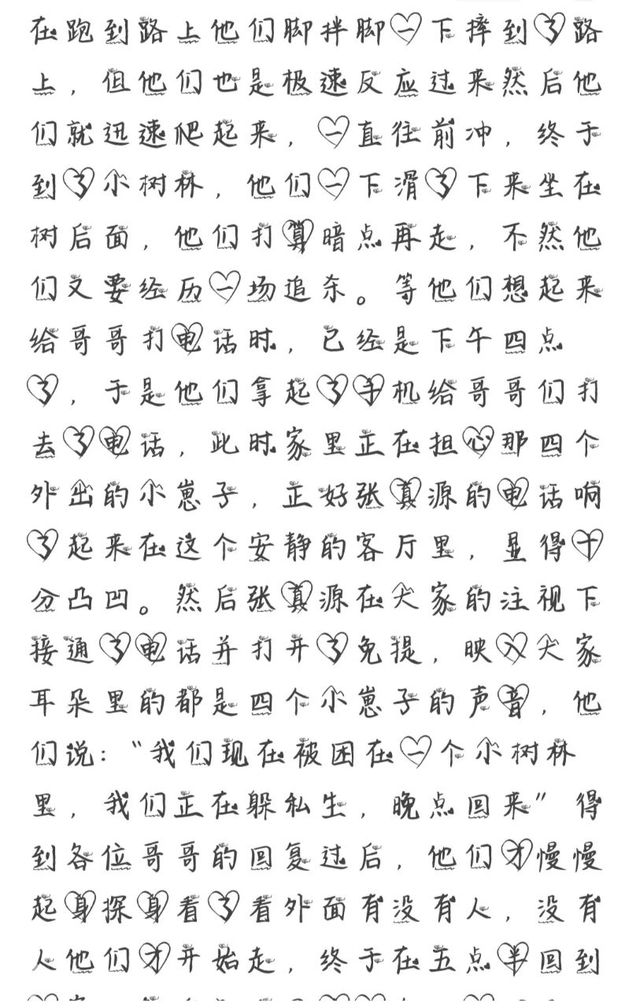 在跑到路上他们脚拌脚一下摔到了路
上，但他们也是极速反应过来然后他
们就迅速爬起来，一直往前冲，终于
到了小树林，他们一下滑了下来坐在
树后面，他们打算暗点再走，不然他
们又要经历一场追杀。等他们想起来
给哥哥打电话时，已经是下午四点
了，于是他们拿起了手机给哥哥们打
去了电话，此时家里正在担心那四个
外出的小崽子，正好张真源的电话响
了起来在这个安静的客厅里，显得十
分凸凹。然后张真源在大家的注视下
接通了电话并打开了免提，映入大家
耳朵里的都是四个小崽子的声音，他
们说：“我们现在被困在一个小树林
里，我们正在躲私生，晚点回来”得
到各位哥哥的回复过后，他们才慢慢
起身探身看了看外面有没有人，没有
人他们才开始走，终于在五点半回到